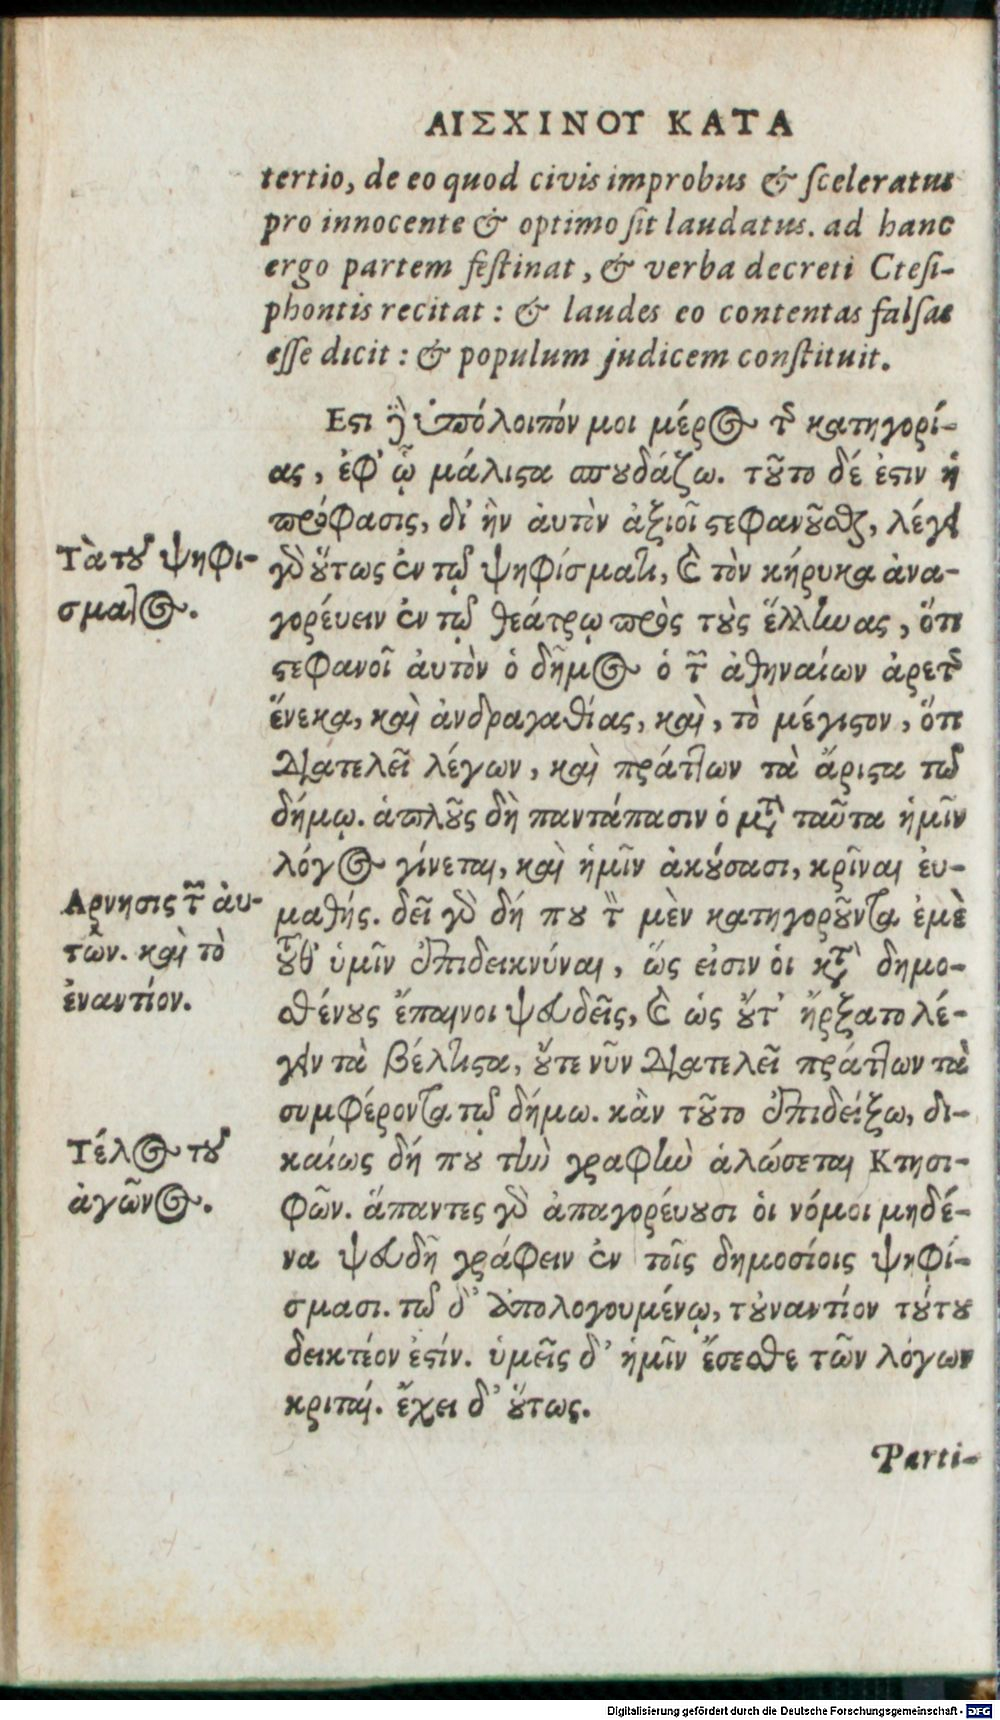 ΑΙΣΧΙΝΟΥ ΚΑΤΑ
tertio, de eo quod civis improbus & sceleratus
pro innocente & optimo sit laudatus. ad hanc
ergo partem festinat, & verba decreti Ctesi-
phontis recitat: & laudes eo contentas falsas
esse dicit: & populum judicem constituit.
Εϛι δὲ ὑπόλοιπόν μοι μέρος τῆς κατηγορί-
ας, ἐφ' ᾧ μάλιϛα σπουδάζω. τοῦτο δέ ἐϛιν ἡ
πρόφασις, δι' ἣν ἀυτὸν ἀξιοῖ ϛεφανοῦσθαι, λέγει
γὰρ οὕτως ἐν τῷ ψηφίσματι, καὶ τὸν κήρυκα ἀνα-
γορέυειν ἐν τῷ θεάτρῳ πρὸς τοὺς ἕλληνας, ὅτι
ϛεφανοῖ ἀυτὸν ὁ δῆμος ὁ τῶν ἀθηναίων ἀρετῆς
ἕνεκα, καὶ ἀνδραγαθίας, καὶ, τὸ μέγιϛον, ὅτι
διατελεῖ λέγων, καὶ πράττων τὰ ἄριϛα τῷ
δήμῳ. ἁπλοῦς δὴ παντάπασιν ὁ μετὰ ταῦτα ἡμῖν
λόγος γίνεται, καὶ ἡμῖν ἀκούσασι, κρῖναι ἐυ-
μαθής. δεῖ γὰρ δή που τὸν μὲν κατηγοροῦντα ἐμὲ
τοῦθ' ὑμῖν ἐπιδεικνύναι, ὥς εἰσιν ὁι κατὰ δημο-
σθένους ἔπαινοι ψευδεῖς, καὶ ὡς οὔτ' ἤρξατο λέ-
γειν τὰ βέλτιϛα, οὔτε νῦν διατελεῖ πράττων τὰ
συμφέροντα τῷ δήμω. κἂν τοῦτο ἐπιδείξω, δι-
καίως δή που τὴν γραφὴν ἁλώσεται Κτησι-
φῶν. ἅπαντες γὰρ ἀπαγορέυουσι ὁι νόμοι μηδέ-
να ψευδῆ γράφειν ἐν τοῖς δημοσίοις ψηφί-
σμασι. τῷ δ' ἀπολογουμένῳ, τοὐναντίον τούτου
δεικτέον ἐϛίν. ὑμεῖς δ' ἡμῖν ἔσεσθε τῶν λόγων
κριταί. ἔχει δ' οὕτως.
Parti-
Τὰ τοῦ ψηφί-
σματος.
Αρνησις τῶν ἀυ-
τῶν. καὶ τὸ
ἐναντίον.
Τέλος τοῦ
ἀγῶνος.
Digitalisierung gefördert durch die Deutsche Forschungsgemeinschaft - DFG